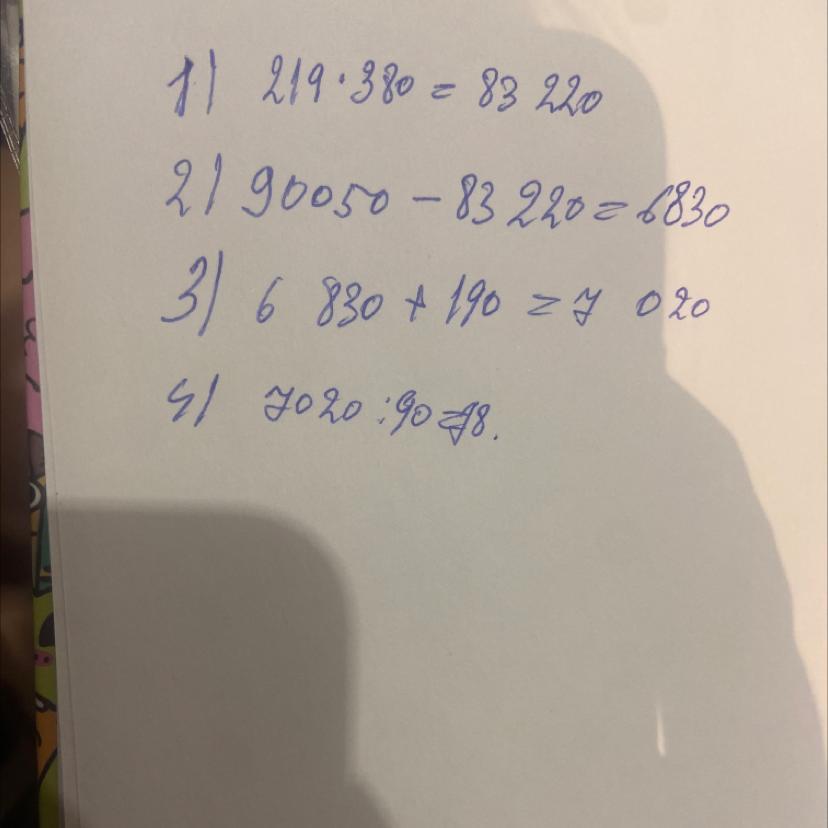 1) 219·380 = 83 220
2) 90050 - 83 220 = 6830
3) 6 830 + 190 = 7 020
4) 7020:90=78.